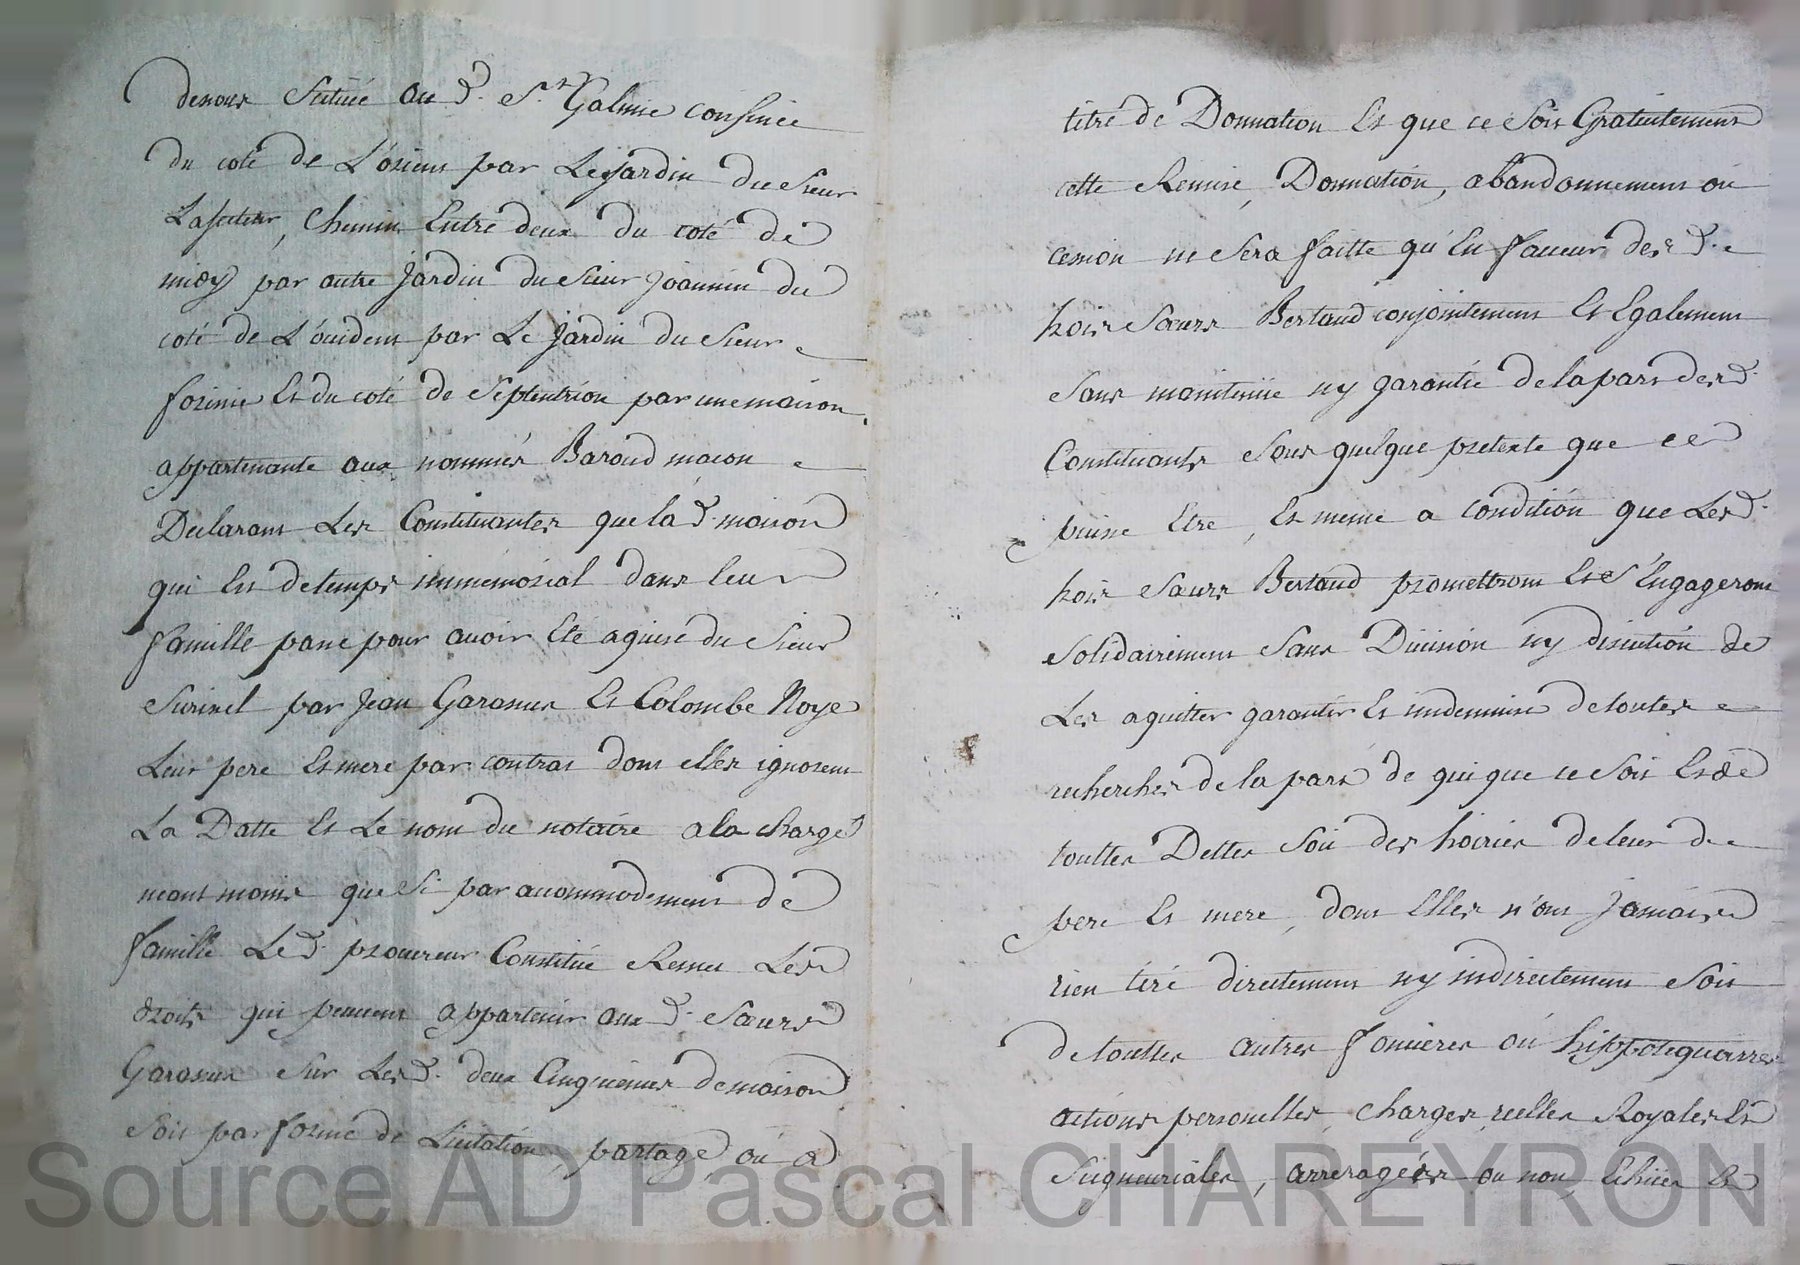 denous Scituée au d. St Galmie confinée
du coté de L'orient par Le jardin du Sieur
chemin Entre deux du coté de
midy par autre Jardin du Sieur Joannin du
coté de L'ouident par Le Jardin du Sieur
forinie Et du coté de Septentrion par une maison
appartenante aux nommés Baroud macon
Declarant Les Constituantes que la d. maison
qui Est de temps immémorial dans leur
famille passe pour avoir Eté aquise du Sieur
par Jean Garassus Et Colombe Noye
Leur pere Et mere par contrat dont elles ignorent
La Datte Et Le nom du notaire a la charge
neant moins que Si par accommodement de
famille Le d. procureur Constitué Remet Les
droits qui peuvent appartenir aux d. Sœurs
Garassus Sur Les d. deux Cinquiemes de maison
Soit par forme de Licitation, partage ou a
titre de Donnation Et que ce Soit Gratuitement
cette Remise, Donnation, abandonnement ou
cession ne Sera faitte qu'En faveur des d.
hoirs Sœurs Bertaud conjointement Et Egalement
Sans maintenüe ny garantie de la part des d.
Constituants Sous quelque pretexte que ce
puisse Etre, Et meme a condition que Les d.
hoirs Sœurs Bertaud promettront Et S'Engageront
Solidairement Sans Division ny discution de
Les aquitter garantir Et indemnise de toutes
recherches de la part de qui que ce Soit Et de
touttes Dettes Soit des hoiries de leur d.
pere Et mere, dont Elles n'ont Jamais
rien tiré directement ny indirectement Soit
de touttes autres foncieres ou hippotequaires
actions personelles, charges reelles Royales Et
Seigneuriales, arreragées ou non Echües Et
Source AD Pascal CHAREYRON